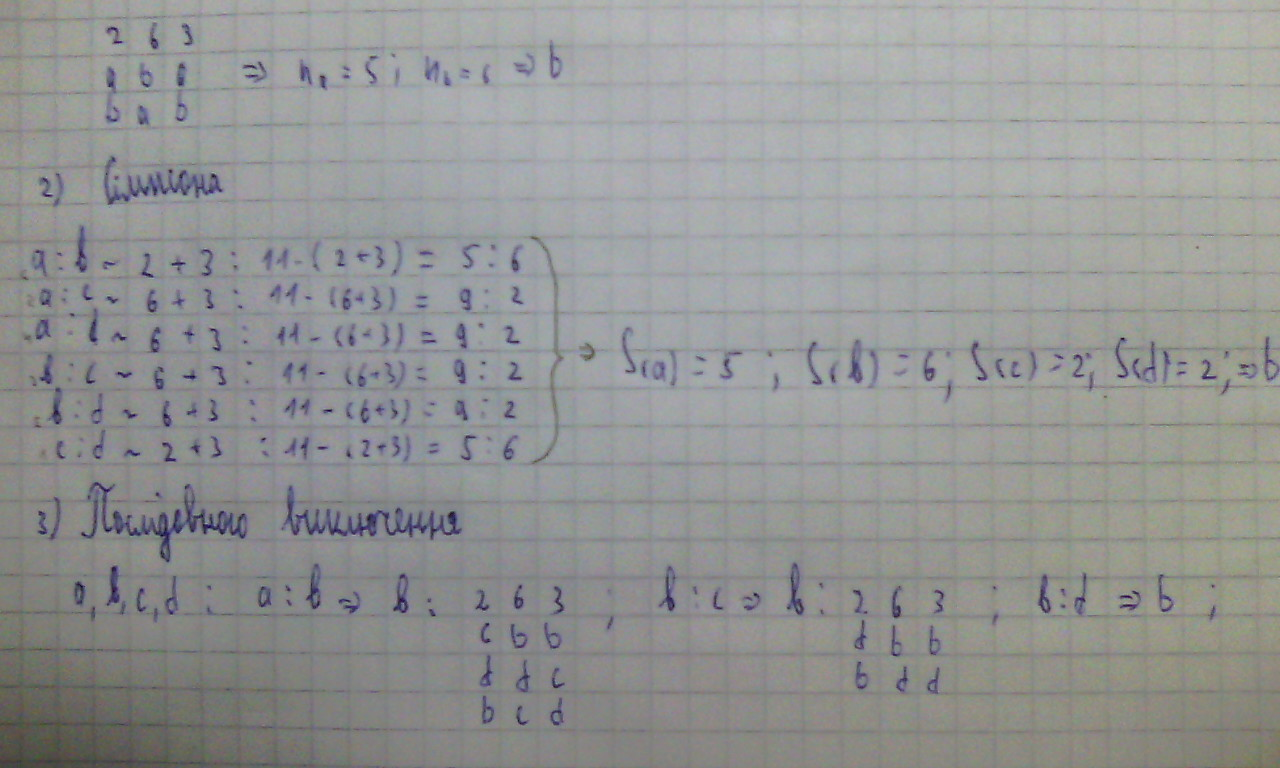 2 6 3
a b a ⇒ nₐ = 5 ; n_b = 6 ⇒ b
b a b
2) Сімпсона
a : b ~ 2 + 3 : 11 - (2+3) = 5 : 6
a : c ~ 6 + 3 : 11 - (6+3) = 9 : 2
a : d ~ 6 + 3 : 11 - (6+3) = 9 : 2
b : c ~ 6 + 3 : 11 - (6+3) = 9 : 2
b : d ~ 6 + 3 : 11 - (6+3) = 9 : 2
c : d ~ 2 + 3 : 11 - (2+3) = 5 : 6
⇒ S(a) = 5 ; S(b) = 6; S(c) = 2; S(d) = 2; ⇒ b
3) Послідовного виключення
a, b, c, d : a : b ⇒ b : 2 6 3 ; b : c ⇒ b : 2 6 3 ; b : d ⇒ b ;
c b b d b b
d d c b d d
b c d